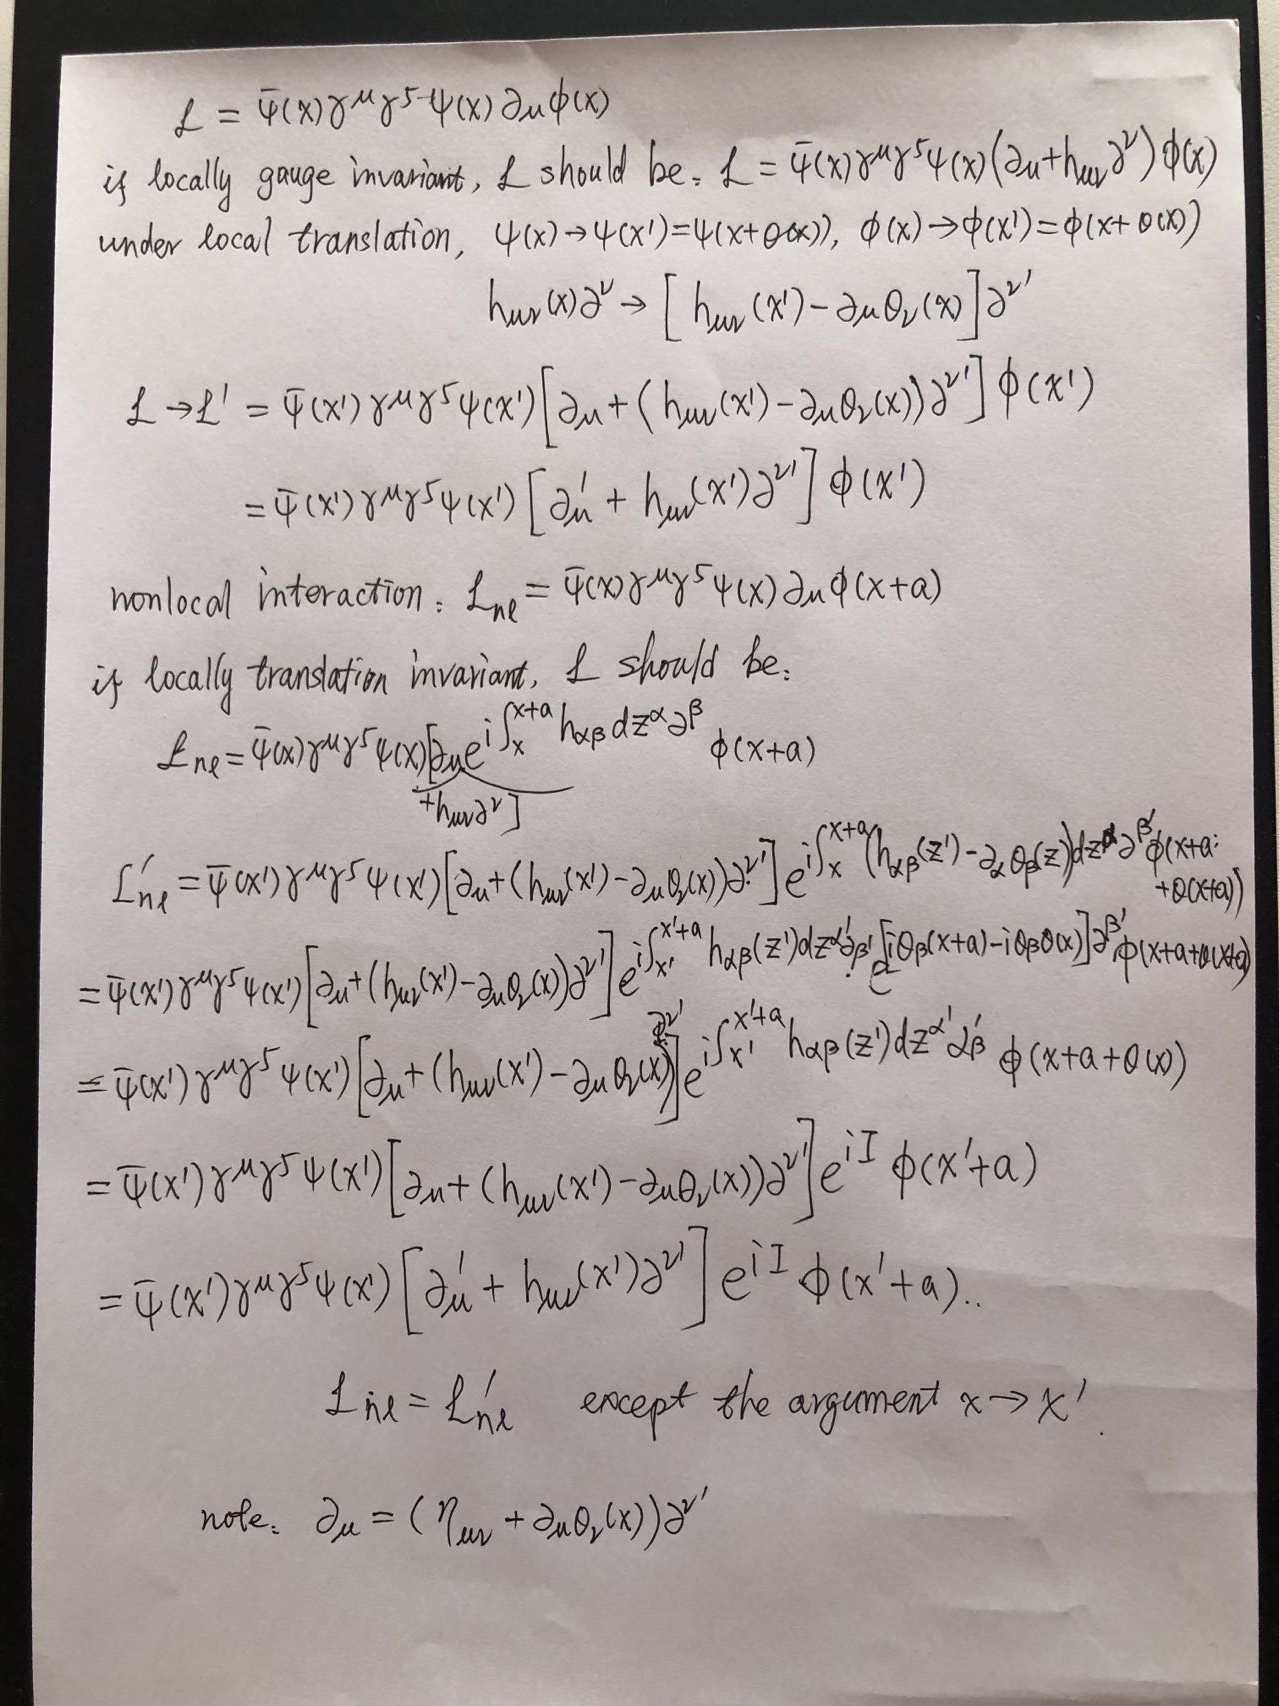 ℒ = ψ̄(x)γ^μγ^5ψ(x)∂_μϕ(x)
if locally gauge invariant, ℒ should be: ℒ = ψ̄(x)γ^μγ^5ψ(x)(∂_μ+h_μν∂^ν)ϕ(x)
under local translation, ψ(x)→ψ(x')=ψ(x+θ(x)), ϕ(x)→ϕ(x')=ϕ(x+θ(x))
h_μν(x)∂^ν → [h_μν(x')-∂_μθ_ν(x)]∂^ν'
ℒ→ℒ' = ψ̄(x')γ^μγ^5ψ(x')[∂_μ+(h_μν(x')-∂_μθ_ν(x))∂^ν']ϕ(x')
= ψ̄(x')γ^μγ^5ψ(x')[∂'_μ + h_μν(x')∂^ν']ϕ(x')
nonlocal interaction: ℒ_nl = ψ̄(x)γ^μγ^5ψ(x)∂_μϕ(x+a)
if locally translation invariant, ℒ should be:
ℒ_nl = ψ̄(x)γ^μγ^5ψ(x)[∂_μ e^{i∫_x^{x+a} h_αβ dz^α ∂^β} ϕ(x+a)
+h_μν∂^ν]
ℒ'_nl = ψ̄(x')γ^μγ^5ψ(x')[∂_μ+(h_μν(x')-∂_μθ_ν(x))∂^ν'] e^{i∫_x^{x+a}(h_αβ(z')-∂_αθ_β(z))dz^α ∂^β'} ϕ(x+a
+θ(x+a))
= ψ̄(x')γ^μγ^5ψ(x')[∂_μ+(h_μν(x')-∂_μθ_ν(x))∂^ν'] e^{i∫_{x'}^{x'+a} h_αβ(z')dz^α' ∂_β'} e^{[iθ_β(x+a)-iθ_βθ(x)]∂^β'} ϕ(x+a+θ(x+a))
= ψ̄(x')γ^μγ^5ψ(x')[∂_μ+(h_μν(x')-∂_μθ_ν(x))∂^ν'] e^{i∫_{x'}^{x'+a} h_αβ(z')dz^α' ∂'_β} ϕ(x+a+θ(x))
= ψ̄(x')γ^μγ^5ψ(x')[∂_μ+(h_μν(x')-∂_μθ_ν(x))∂^ν'] e^{iI} ϕ(x'+a)
= ψ̄(x')γ^μγ^5ψ(x')[∂'_μ + h_μν(x')∂^ν'] e^{iI} ϕ(x'+a)..
ℒ_nl = ℒ'_nl except the argument x→x'.
note: ∂_μ = (η_μν + ∂_μθ_ν(x))∂^ν'